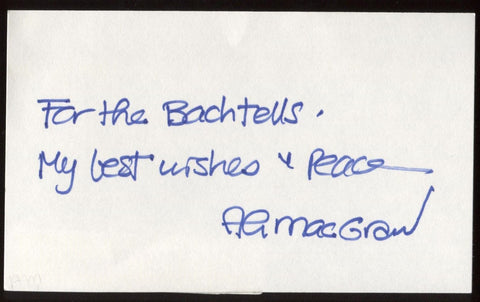 For the Bachtells.
My best wishes & Peace
Ali MacGraw